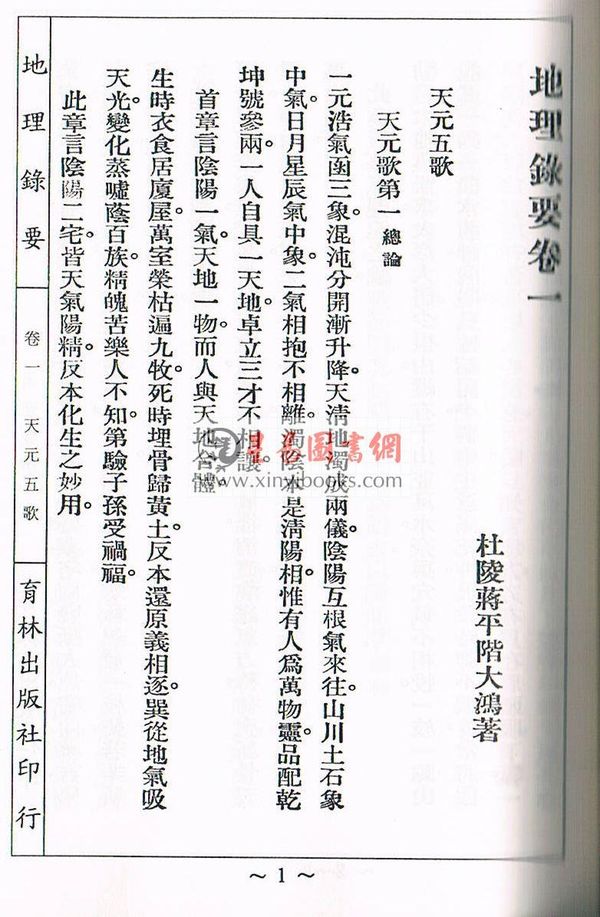 地理錄要卷一
杜陵蔣平階大鴻著
天元五歌
天元歌第一 總論
一元浩氣函三象。混沌分開漸升降。天清地濁成兩儀。陰陽互根氣來往。山川土石象
中氣。日月星辰氣中象。二氣相抱不相離。濁陰本是清陽相。惟有人爲萬物靈。品配乾
坤號參兩。一人自具一天地。卓立三才不相讓。
首章言陰陽一氣。天地一物。而人與天地合體。
生時衣食居廈屋。萬室榮枯遍九牧。死時埋骨歸黃土。反本還原義相逐。巽從地氣吸
天光。變化蒸噓蔭百族。精魄苦樂人不知。第驗子孫受禍福。
此章言陰陽二宅。皆天氣陽精。反本化生之妙用。
地理錄要
卷一 天元五歌
育林出版社印行
星易圖書網
www.xinyibooks.com
~ 1 ~